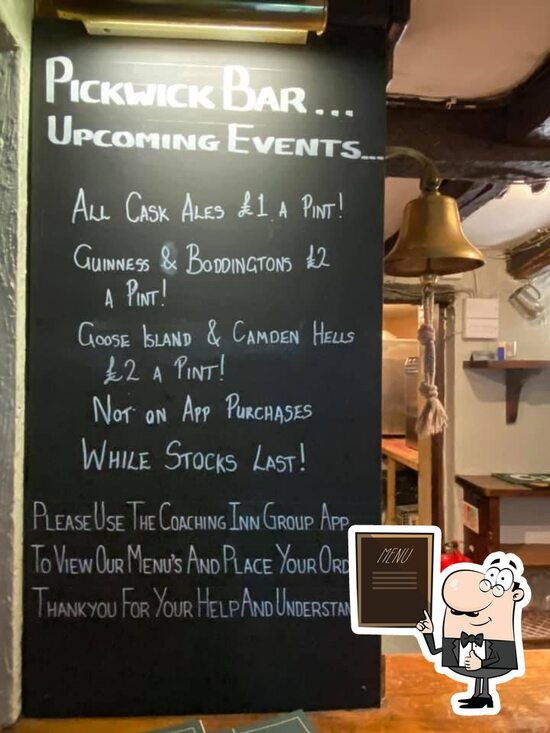 PICKWICK BAR...
UPCOMING EVENTS...
ALL CASK ALES £1 A PINT!
GUINNESS & BODDINGTONS £2
A PINT!
GOOSE ISLAND & CAMDEN HELLS
£2 A PINT!
NOT ON APP PURCHASES
WHILE STOCKS LAST!
PLEASE USE THE COACHING INN GROUP APP
TO VIEW OUR MENU'S AND PLACE YOUR ORD
THANKYOU FOR YOUR HELP AND UNDERSTAN
MENU